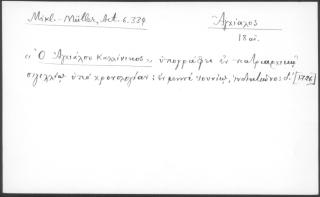 Mikl.-Müller, Act. 6. 339
Ἀγχίαλος
18 αἰ.
« Ὁ Ἀγχιάλου Καλλίνικος », ὑπογράφει ἐν πατριαρχικῷ
σιγιλλίῳ ὑπὸ χρονολογίαν: ἐν μηνὶ ἰουνίῳ, ἰνδικτιῶνος: δ' [1726]